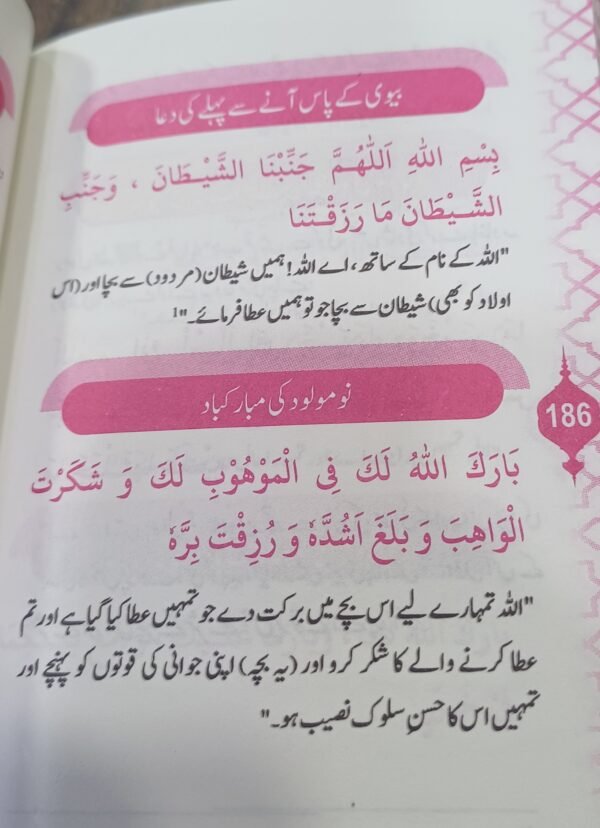 بیوی کے پاس آنے سے پہلے کی دعا
بِسْمِ اللهِ اَللّٰهُمَّ جَنِّبْنَا الشَّيْطَانَ ، وَجَنِّبِ
الشَّيْطَانَ مَا رَزَقْتَنَا
"اللہ کے نام کے ساتھ، اے اللہ! ہمیں شیطان (مردود) سے بچا اور (اس
اولاد کو بھی) شیطان سے بچا جو تو ہمیں عطا فرمائے۔"1
نومولود کی مبارکباد
186
بَارَكَ اللهُ لَكَ فِى الْمَوْهُوْبِ لَكَ وَ شَكَرْتَ
الْوَاهِبَ وَ بَلَغَ اَشُدَّهٗ وَ رُزِقْتَ بِرَّهٗ
"اللہ تمہارے لیے اس بچے میں برکت دے جو تمہیں عطا کیا گیا ہے اور تم
عطا کرنے والے کا شکر کرو اور (یہ بچہ) اپنی جوانی کی قوتوں کو پہنچے اور
تمہیں اس کا حسنِ سلوک نصیب ہو۔"